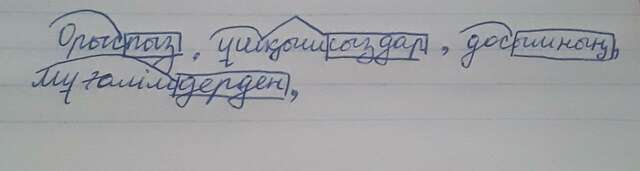 Орыспыз, ұшқышсыздар, досымның,
Мұғалімдерден,